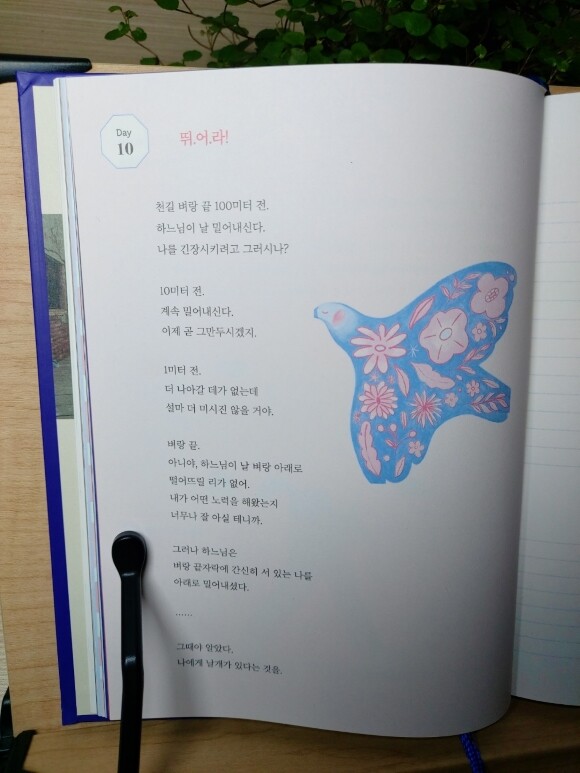 Day
10
뛰.어.라!
천길 벼랑 끝 100미터 전.
하느님이 날 밀어내신다.
나를 긴장시키려고 그러시나?
10미터 전.
계속 밀어내신다.
이제 곧 그만두시겠지.
1미터 전.
더 나아갈 데가 없는데
설마 더 미시진 않을 거야.
벼랑 끝.
아니야, 하느님이 날 벼랑 아래로
떨어뜨릴 리가 없어.
내가 어떤 노력을 해왔는지
너무나 잘 아실 테니까.
그러나 하느님은
벼랑 끝자락에 간신히 서 있는 나를
아래로 밀어내셨다.
......
그때야 알았다.
나에게 날개가 있다는 것을.